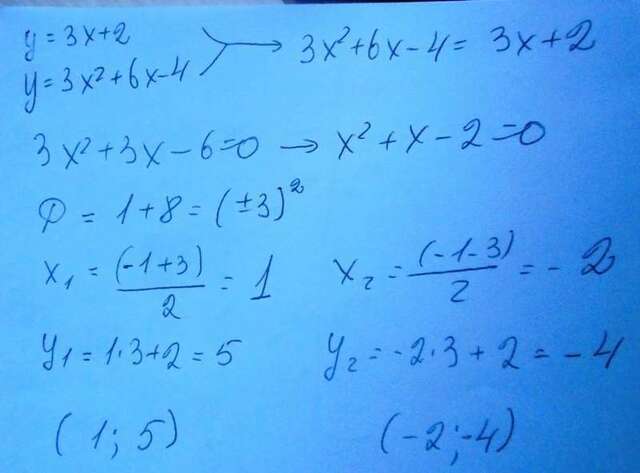 y = 3x+2
y = 3x²+6x-4 → 3x²+6x-4 = 3x+2
3x²+3x-6=0 → x²+x-2=0
D = 1+8 = (±3)²
x₁ = (-1+3)/2 = 1 x₂ = (-1-3)/2 = -2
y₁ = 1·3+2 = 5 y₂ = -2·3+2 = -4
(1; 5) (-2;-4)